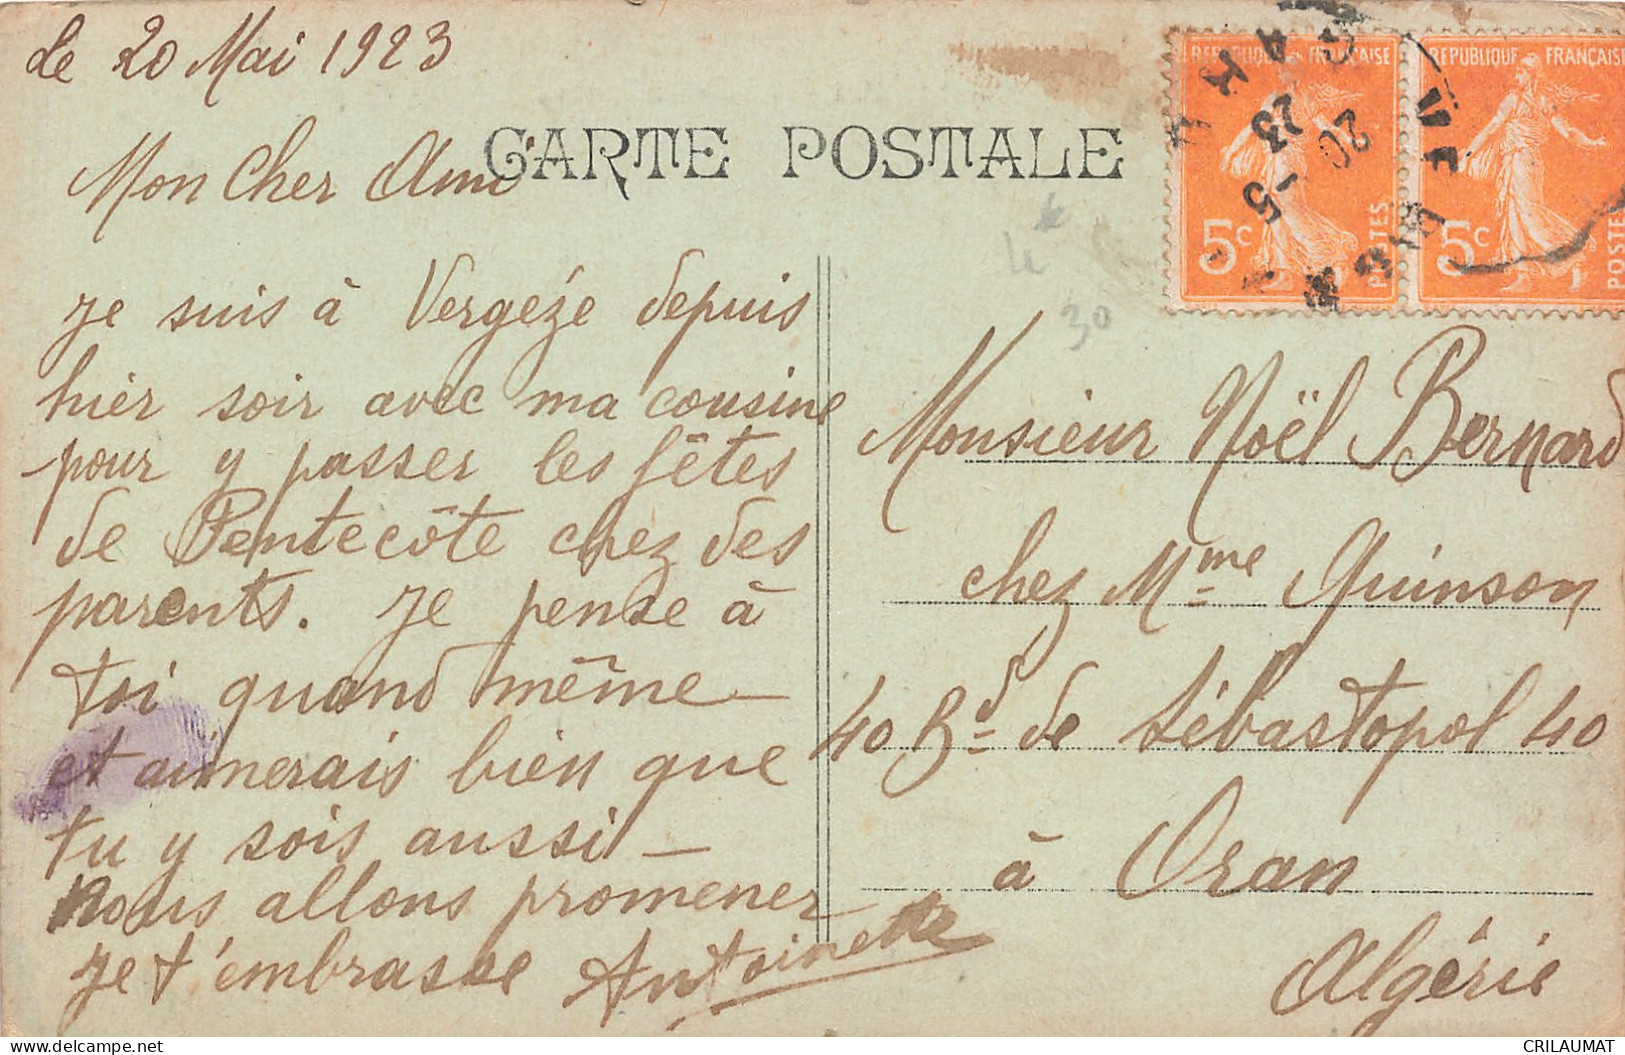 le 20 Mai 1923
CARTE POSTALE
Mon Cher Ami
je suis à Vergèze depuis
hier soir avec ma cousine
pour y passer les fêtes
de Pentecôte chez des
parents. Je pense à
toi quand même —
et aimerais bien que
tu y sois aussi —
Nous allons promener
Je t'embrasse Antoinette
REPUBLIQUE FRANÇAISE
5c
POSTES
REPUBLIQUE FRANÇAISE
5c
POSTES
20 -5
23
VERGEZE
GARD
4
30
Monsieur Noël Bernard
chez Mme Quinson
40 Bd de Sébastopol 40
à Oran
Algérie
CRILAUMAT